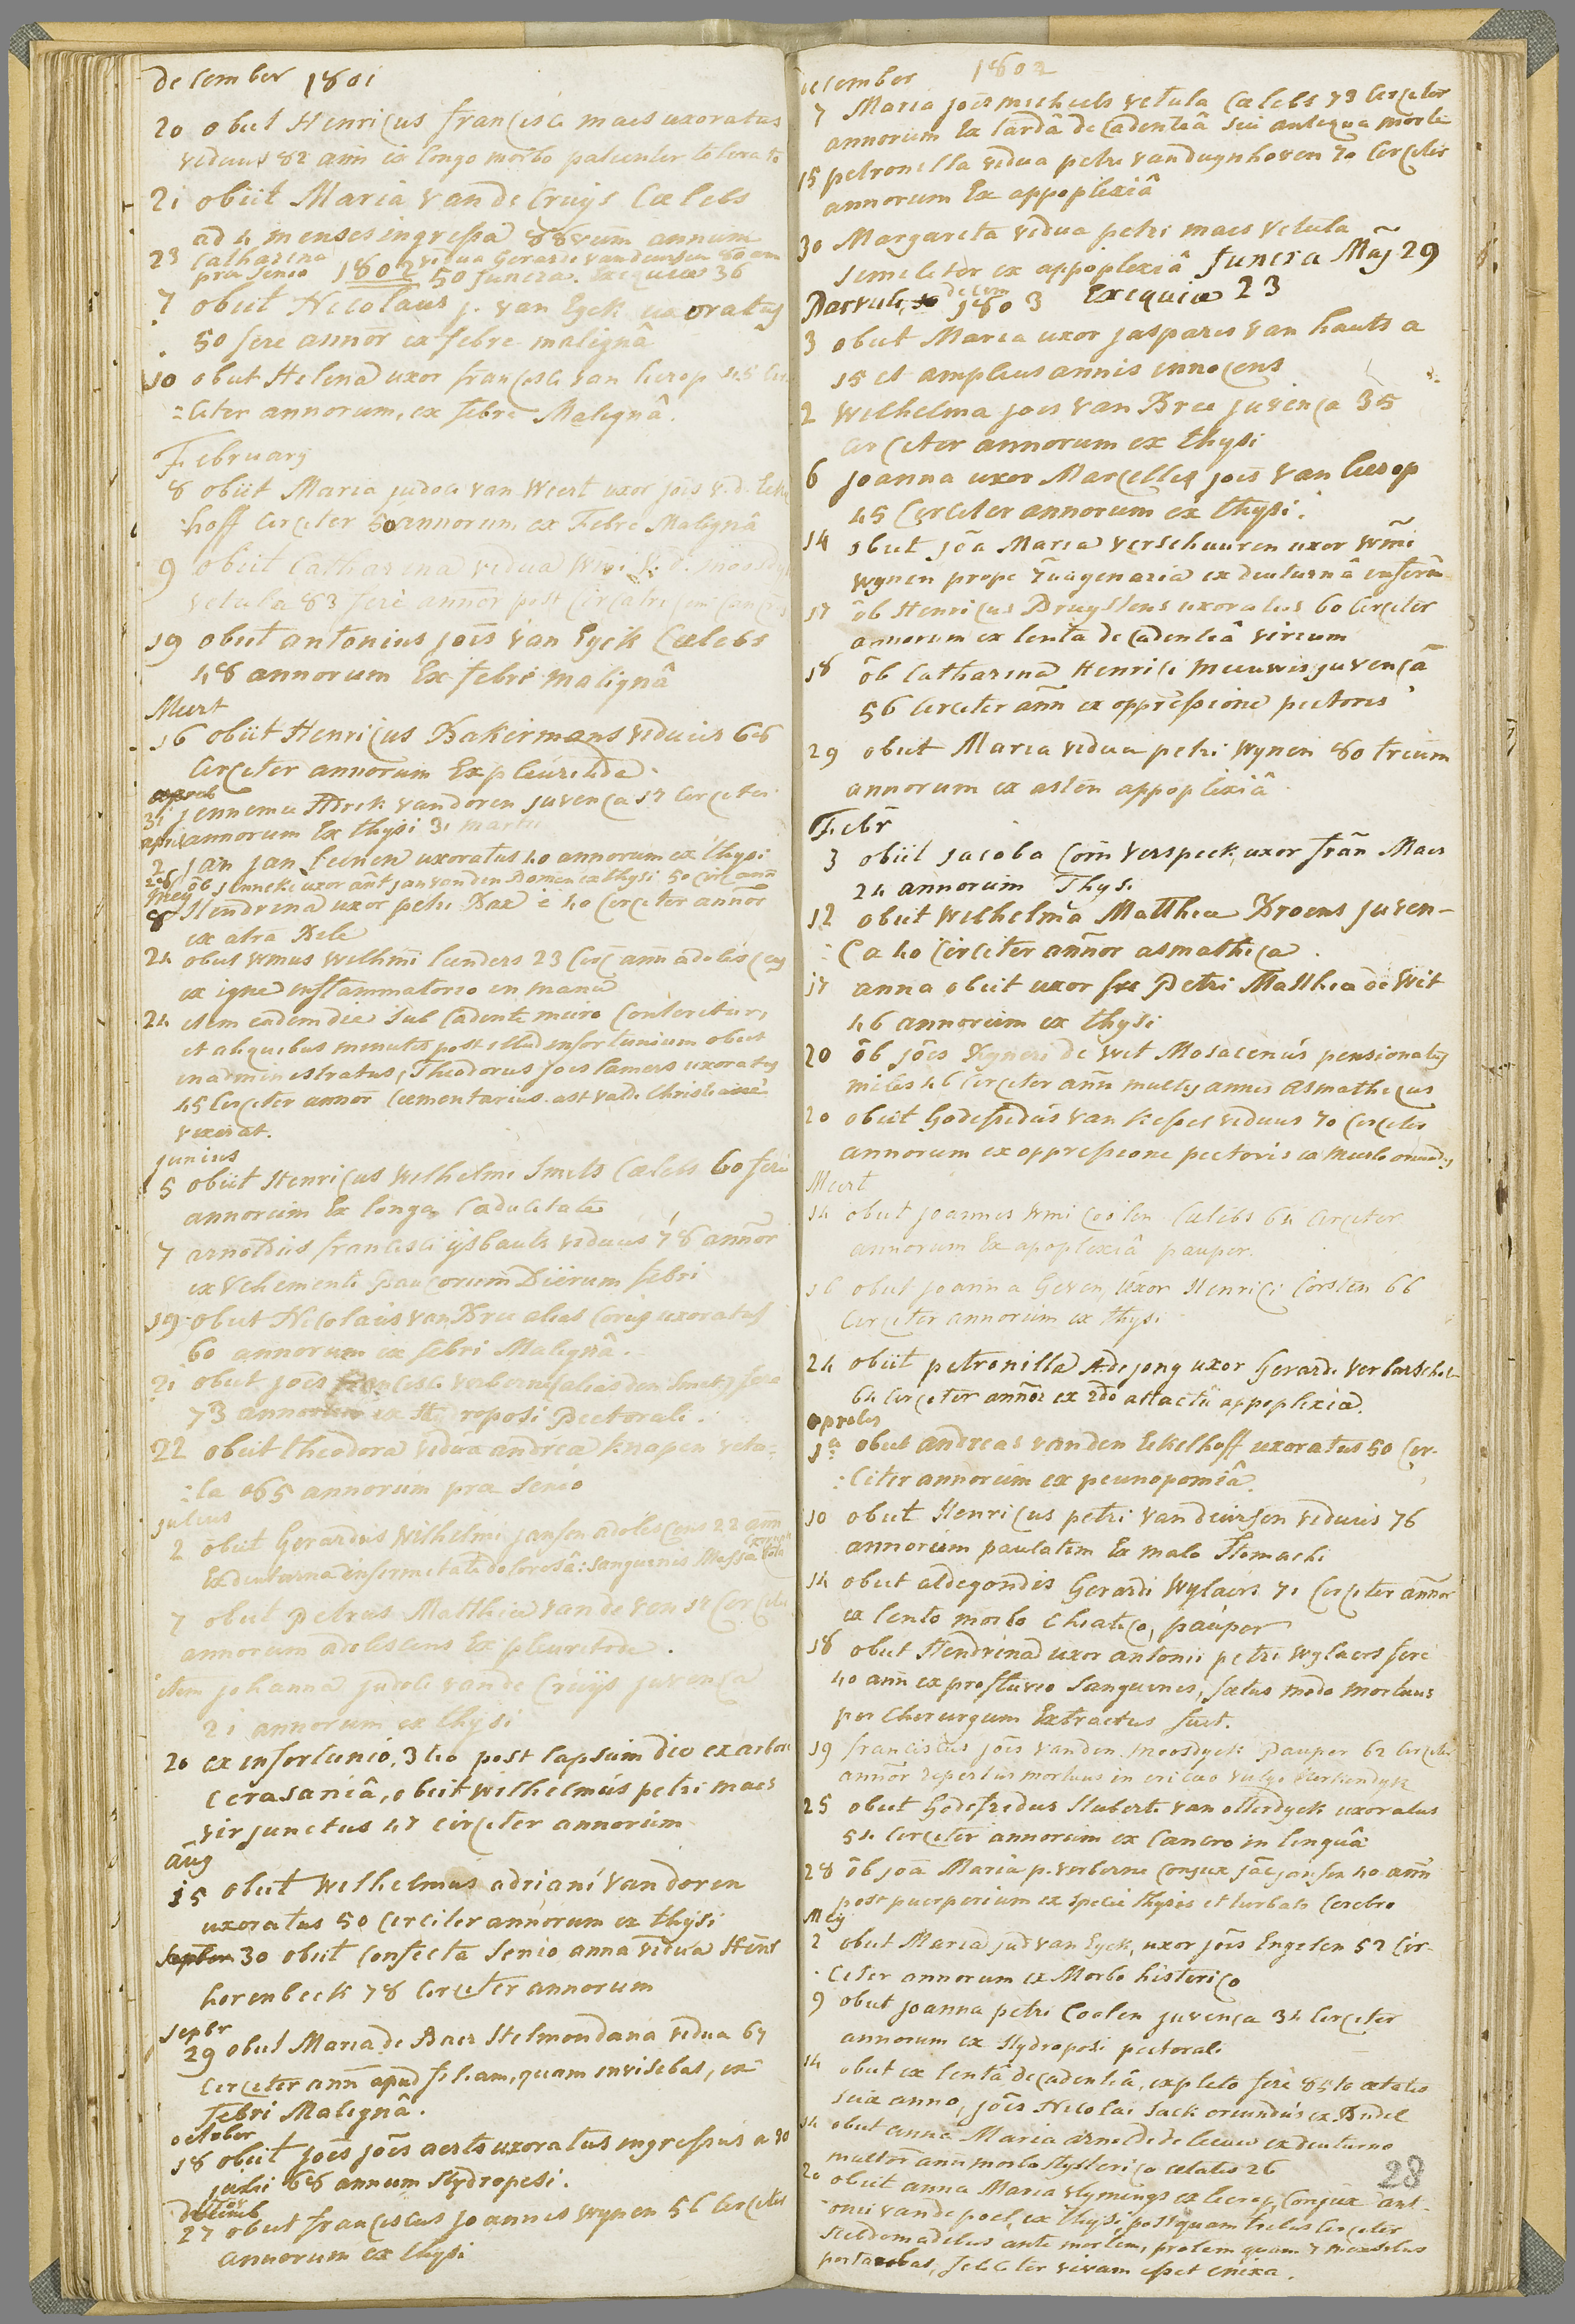 december 1801
20 obiit Henricus francisci maes uxoratus
viduus 82 annȋ ex longo morbo patienter tolerato
21 obiit Maria van de Cruijs Cælebs
ad 4 menses ingressa 88vum annum
23 Catharina vidua Gerardi van deursen 80 ann
præ senio 1802 50 funera. Exequiæ 36
7 obiit Nicolaus j. van Eyck uxoratus
50 fere annor̄ ex febre malignâ
10 obiit Helena uxor francisci van lierop 45 cir
=citer annorum, ex febre Malignâ.
February
8 obiit Maria judoci van Weert uxor jois v.d.
hoff circiter 50 annorum ex Febre Malignâ
9 obiit Catharina vidua Wmi v. d. moosdijk
vetula 83 fere annor̄ post
19 obiit antonius jois van Eyck Cælebs
48 annorum Ex febri malignâ
Meert
16 obiit Henricus Bakermans viduus 66
Circiter annorum Ex pleuritide.
31 jennemie Hdrik van doren juvenca 17 circiter
aprilis annorum Ex thysi 31 martii
2 jan jan leenen uxoratus 40 annorum ex thysi
26 ōb jenneke uxor ant jan van den Bomen ex thysi 50 circ ann
Mey
8 Hendrina uxor petri Bax 40 circiter annor̄
ex atra Bile
24 obiit Wmus Wilhmi leenders 23 circ ann adolescens
ex igne inflammatorio in manu
24 item eadem die sub cadente muro conteritur,
et aliquibus minutis post illud infortunium obiit
inadministratus, Theodorus jois lamers uxoratus
45 Circiter annor cæmentarius. ast valde Christianè
vixerat.
junius
5 obiit Henricus Wilhelmi Smits Cælebs 60 fere
annorum Ex longa Caducitate
7 arnoldus francisci ijsbouts viduus 78 annor̄
ex vehementi paucorum Diërum febri
19 obiit Nicolaus van Bree alias Corig uxoratus
60 annorum ex febri Malignâ.
21 obiit jois francisci verberne (alias den Smit) fere
73 annorum ex Hydroposi Pectorali.
22 obiit theodora vidua andreæ knapen vetu=
=la 65 annorum præ senio
julius
2 obiit Gerardus Wilhelmi jansen adolescens 22 ann
Ex diuturna infirmitate dolorosâ: sanguinis Massa
7 obiit Petrus Matthiæ van de ven 17 Circiter
annorum adolescens Ex pleuritide.
item johanna judoci van de Cruijs juvenca
21 annorum ex thysi
20 ex infortunio, 3tio post lapsum die ex arbore
cerasaniâ, obiit Wilhelmus petri maes
vir junctus 47 circiter annorum
aug
15 obiit Wilhelmus adriani van doren
uxoratus 50 Circiter annorum ex thysi
30 obiit confecta senio anna vidua
horenbeek 78 circiter annorum
sepbr
29 obiit Maria de Baer Helmondana vidua 67
circiter ann apud filiam, quam invisebat, ex
febri Malignâ.
october
18 obiit joēs joēs aerts uxoratus ingressus a 30
julii 68 annum Hydropesi.
27 obiit franciscus joannes wynen 56 circiter
annorum ex thysi
december 1802
7 Maria jois michiels vetula Cælebs 73 circiter
annorum Ex tardâ decadentiâ sui antequa morbi
15 petronella vidua petri van duynhoven 70 Circiter
annorum Ex appoplexiâ
30 Margareta vidua petri maes vetula
similiter ex appoplexiâ funera Maj 29
Parvuli 1803 Exequiæ 23
3 obiit Maria uxor jaspares van hauts a
15 et amplius annis innocens
2 Wilhelma jois van Bree juvenca 35
circiter annorum ex thysi
6 joanna uxor Marcelli jois van lierop
45 Circiter annorum ex thysi.
14 obiit jōa Maria verschuuren uxor Wm̄i
wynen prope 7uagenaria ex diuturnâ
17 ōb Henricus Bruystens uxoratus 60 circiter
annorum ex lenta decadentiâ virium
18 ōb Catharina Henrici meeuwis juvencā
56 circiter ann̄ ex oppressione pectoris
29 obiit Maria vidua petri wynen 80 trium
annorum ex appoplexiâ
Febr̄
3 obiit jacoba Corn̄ verspeek uxor frān Maes
24 annorum Thysi
12 obiit Wilhelma Matthiæ Broens juven-
=ca 40 circiter ann̄or asmathica.
17 anna obiit uxor Petri Matthiæ de Wit
46 annorum ex thysi
20 ōb jōes Ryneri de wit Mosacenus pensionatus
miles 46 circiter ann̄ multis annis asmathicus
20 obiit Godefridus van kessel viduus 70 circiter
annorum ex oppressione pectoris ex
Meert
14 obiit joannes wmi coolen Cælebs 64 circiter
annorum Ex apoplexiâ pauper.
16 obiit joanna Geven, uxor Henrici Corsten 66
circiter annorum ex thysi
24 obiit petronilla de jong uxor Gerardi verbarschot
64 circiter ann̄or ex 2do attactu appoplexiæ.
aprilis
1a obiit andreas van den Eikelhoff uxoratus 50 Cir-
=citer annorum ex peunopomiâ.
10 obiit Henricus petri van deursen viduus 76
annorum paulatim Ex malo Stomachi
14 obiit aldegondis Gerardi Wylaers 71 circiter ann̄or
ex lento morbo cheatico, pauper
18 obiit Hendrina uxor antonii petri wylaers fere
40 ann̄ ex profluvio sanguinis, fœtus modo mortuus
per Cherurgum Extractus fuit.
19 franciscus jōis van den moosdyck pauper 62 circiter
ann̄or repertus mortuus in ericao vulgo kerkendijk
25 obiit Godefridus Huberti van otterdyck uxoratus
54 circiter annorum ex cancro in linguâ
28 ōb joā Maria p. verberne conjux jāc jansen 40 ann̄
post puerperium ex specie thysis et turbato cerebro
Mey
2 obiit Maria jud van Eyck, uxor jōis Engelen 52 cir-
=citer annorum ex Morbo histerico
9 obiit joanna petri Coolen juvenca 34 circiter
annorum ex Hydroposi pectorali
14 obiit ex lentâ decadentiâ, expleto fere 85to ætatis
suæ anno, jōes Nicolai Sack oriundus ex Budel
14 obiit anna Maria arnoldi de leeuw ex diuturno
multor̄ ann̄ morbo Hysterico ætatis 26
20 obiit anna Maria vlymings ex lierop, conjux ant-
onii van de poel, ex thysi, postquam tribus circiter
Hebdomadibus ante mortem, prolem quam 7 mensibus
portabat, feliciter vivam esset enixa.
28